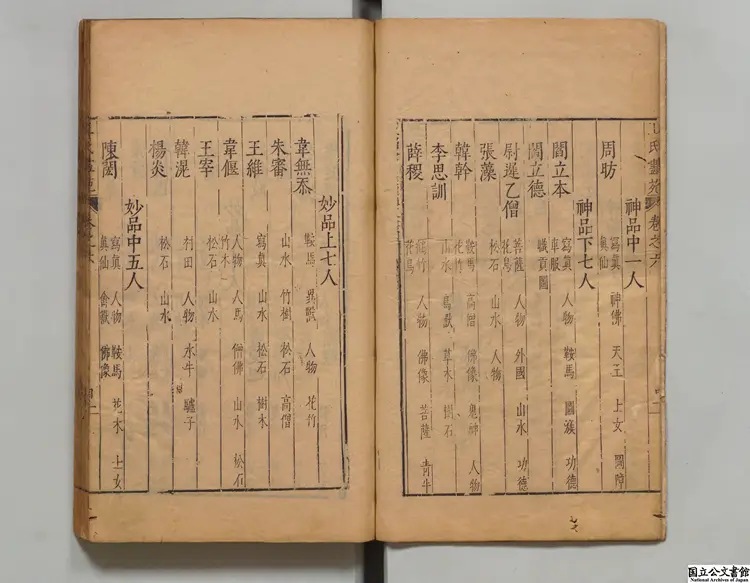 王氏畫苑 卷之六
神品中一人
周昉 寫眞 神佛 天王 士女
眞仙
神品下七人
閻立本 寫眞 人物 鞍馬 圖 功德
車服
閻立德 職貢圖
尉遲乙僧 菩薩 人物 外國 山水 功德
花鳥
張藻 松石 山水 人物
韓幹 鞍馬 高僧 佛像 鬼神 人物
花竹
李思訓 山水 鳥獸 草木 樹石
薛稷 人物 佛像 菩薩 青牛
花鳥
妙品上七人
韋無忝 鞍馬 異獸 人物 花竹
朱審 山水 竹樹 松石 高僧
王維 寫眞 山水 松石 樹木
韋偃 人物 人馬 僧佛 山水 松石
竹木
王宰 松石 山水
韓滉 村田 人物 水牛 驢子
楊炎 松石 山水
妙品中五人
陳閎 寫眞 人物 鞍馬 花木 士女
眞仙 禽獸 佛像
国立公文書館
National Archives of Japan